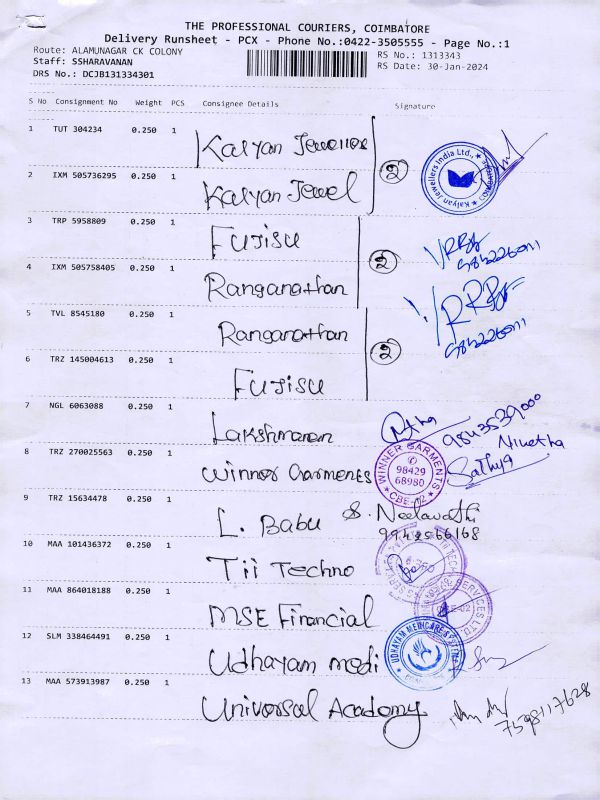 THE PROFESSIONAL COURIERS, COIMBATORE
Delivery Runsheet - PCX - Phone No.:0422-3505555 - Page No.:1
Route: ALAMUNAGAR CK COLONY
RS No.: 1313343
Staff: SSHARAVANAN
RS Date: 30-Jan-2024
DRS No.: DCJB131334301
S No Consignment No Weight PCS Consignee Details Signature
1 TUT 304234 0.250 1 Kalyan Jewellers
2
Kalyan Jewellers India Ltd.,
2 IXM 505736295 0.250 1 Kalyan Jewel
3 TRP 5958809 0.250 1 FUJISU
2
4 IXM 505758405 0.250 1 Ranganathan
5 TVL 8545180 0.250 1 Ranganathan
2
6 TRZ 145004613 0.250 1 FUJISU
7 NGL 6063088 0.250 1 Lakshmanan
Nivetha
8 TRZ 270025563 0.250 1 Winner Garments
WINNER GARMENTS
98429
68980
CBE-02
Sathya
9 TRZ 15634478 0.250 1 L. Babu
10 MAA 101436372 0.250 1 Tii Techno
11 MAA 864018188 0.250 1 MSE Financial
12 SLM 338464491 0.250 1 Udhayam medi
13 MAA 573913987 0.250 1 Universal Academy
7598117628